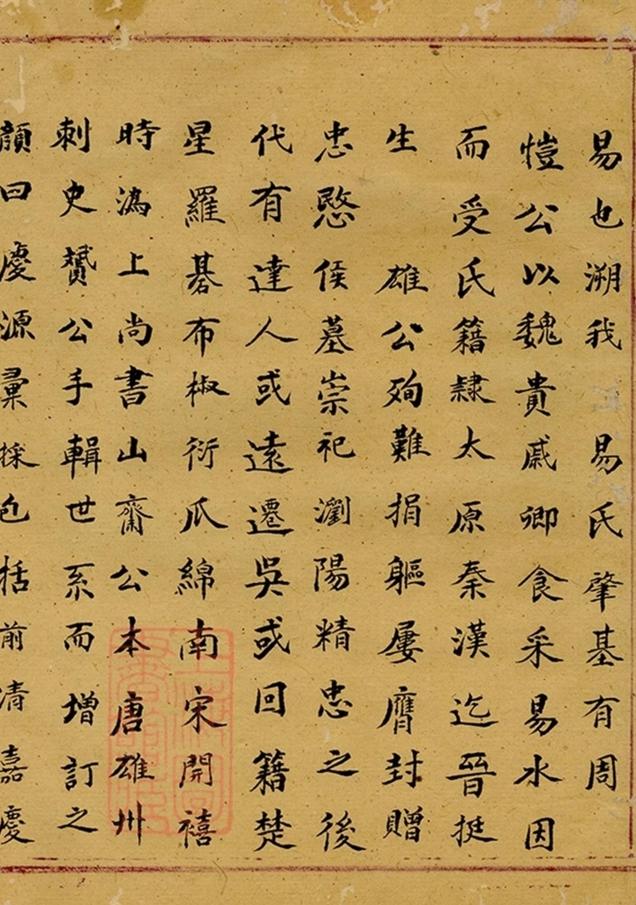 易也溯我 易氏肇基有周
愷公以魏貴戚卿食采易水因
而受氏籍隸太原秦漢迄晉挺
生 雄公殉難捐軀屢膺封贈
忠愍侯墓崇祀瀏陽精忠之後
代有達人或遠遷吳或回籍楚
星羅碁布椒衍瓜綿南宋開禧
時溈上尚書山齋公本唐雄州
刺史贇公手輯世系而增訂之
顏曰慶源彙採包括前清嘉慶